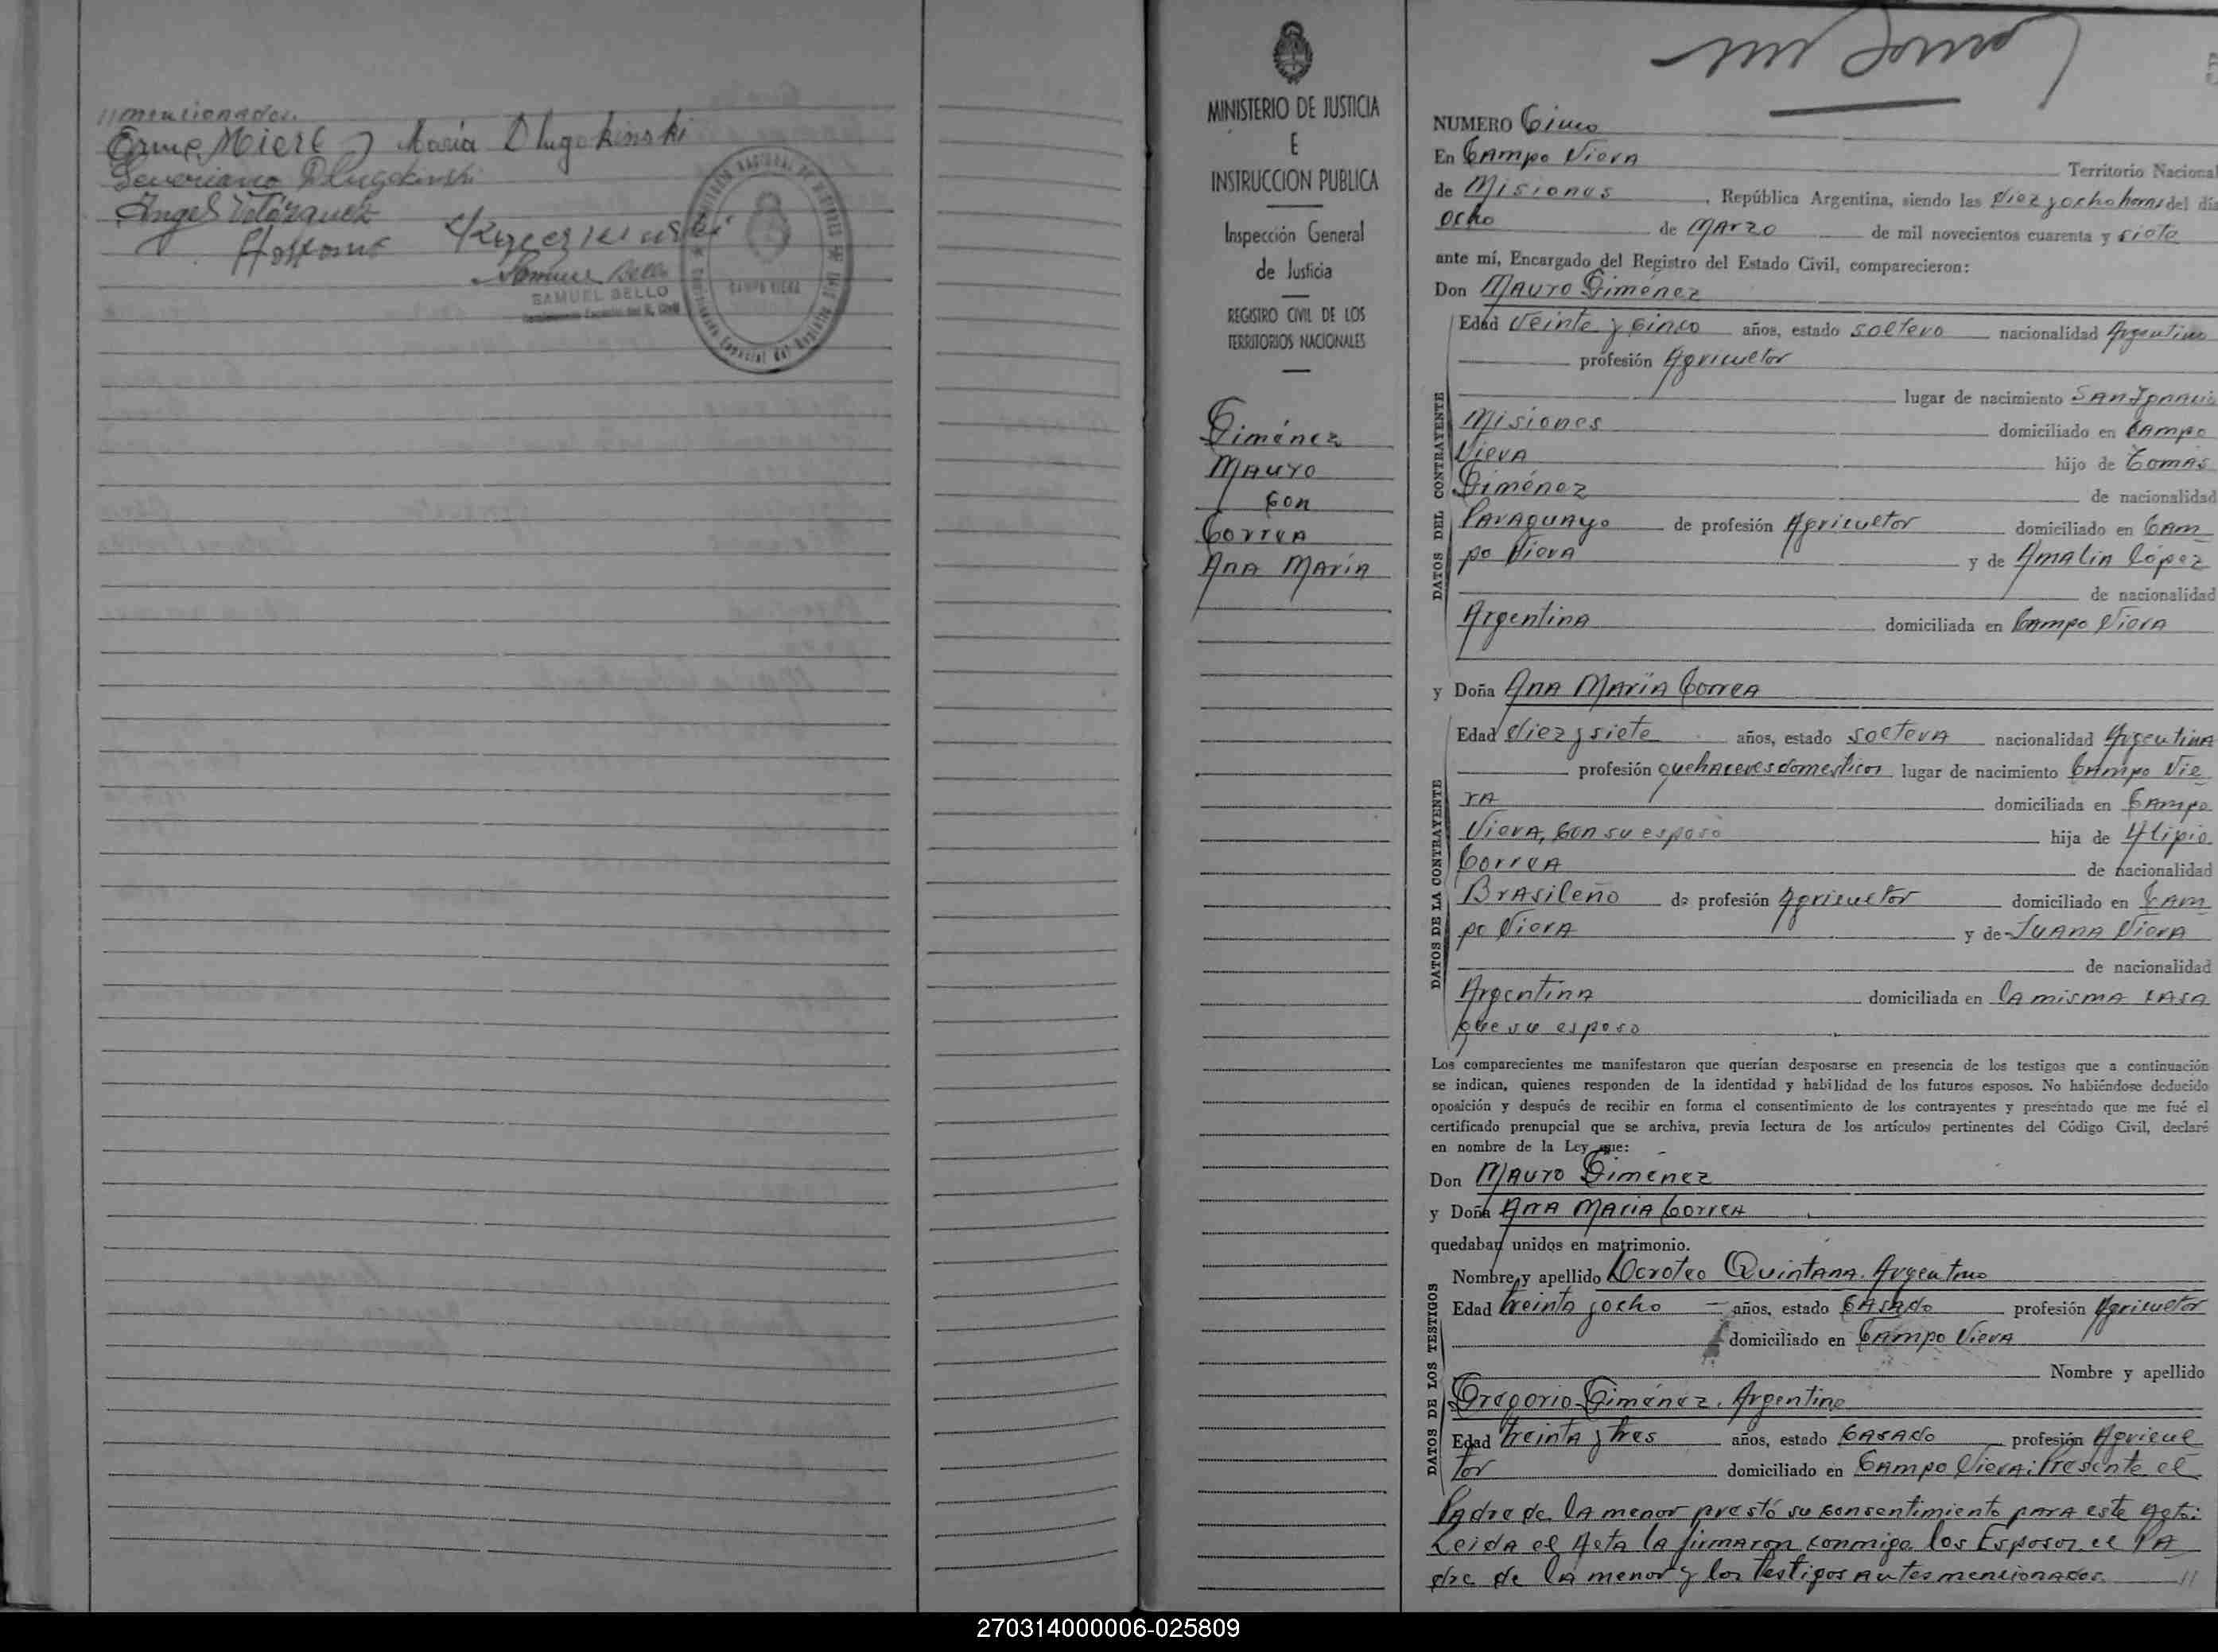 //mencionados.
María Dlugokinski
Severiano Dlugokinski
Angel Velázquez
Samuel Bello
SAMUEL BELLO
CAMPO VIERA
MINISTERIO DE JUSTICIA
E
INSTRUCCION PUBLICA
Inspección General
de Justicia
REGISTRO CIVIL DE LOS
TERRITORIOS NACIONALES
Giménez
Mauro
con
Correa
Ana María
NUMERO Cinco
En Campo Viera Territorio Nacional
de Misiones, República Argentina, siendo las diez y ocho horas del día
ocho de Marzo de mil novecientos cuarenta y siete
ante mí, Encargado del Registro del Estado Civil, comparecieron:
Don Mauro Giménez
DATOS DEL CONTRAYENTE
Edad Veinte y cinco años, estado soltero nacionalidad Argentino
profesión Agricultor
lugar de nacimiento San Ignacio
Misiones domiciliado en Campo
Viera hijo de Tomás
Giménez de nacionalidad
Paraguayo de profesión Agricultor domiciliado en Cam
po Viera y de Amalia López
de nacionalidad
Argentina domiciliada en Campo Viera
y Doña Ana María Correa
DATOS DE LA CONTRAYENTE
Edad diez y siete años, estado soltera nacionalidad Argentina
profesión quehaceres domesticos lugar de nacimiento Campo Vie
ra domiciliada en Campo
Viera, con su esposo hija de Alipio
Correa de nacionalidad
Brasileño de profesión Agricultor domiciliado en Cam
po Viera y de Juana Viera
de nacionalidad
Argentina domiciliada en la misma casa
que su esposo
Los comparecientes me manifestaron que querían desposarse en presencia de los testigos que a continuación
se indican, quienes responden de la identidad y habilidad de los futuros esposos. No habiéndose deducido
oposición y después de recibir en forma el consentimiento de los contrayentes y presentado que me fué el
certificado prenupcial que se archiva, previa lectura de los artículos pertinentes del Código Civil, declaré
en nombre de la Ley que:
Don Mauro Giménez
y Doña Ana Maria Correa
quedaban unidos en matrimonio.
DATOS DE LOS TESTIGOS
Nombre y apellido Doroteo Quintana. Argentino
Edad treinta y ocho años, estado Casado profesión Agricultor
domiciliado en Campo Viera
Nombre y apellido
Gregorio Giménez. Argentino
Edad treinta y tres años, estado Casado profesión Agricul
tor domiciliado en Campo Viera: Presente el
Padre de la menor prestó su consentimiento para este Acto:
Leida el Acta la firmaron conmigo los Esposos el Pa
dre de la menor y los testigos antes mencionados //
270314000006-025809